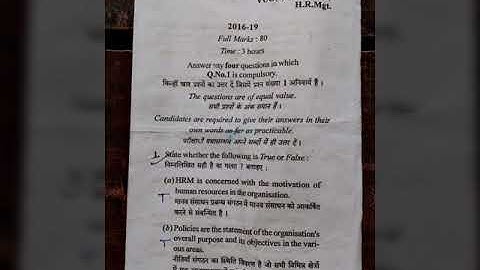 H.R.Mgt.
2016-19
Full Marks : 80
Time : 3 hours
Answer any four questions in which
Q.No.1 is compulsory.
किन्हीं चार प्रश्नों का उत्तर दें जिसमें प्रश्न संख्या 1 अनिवार्य है ।
The questions are of equal value.
सभी प्रश्नों के अंक समान हैं ।
Candidates are required to give their answers in their
own words as far as practicable.
परीक्षार्थी यथासम्भव अपने शब्दों में ही उत्तर दें ।
1. State whether the following is True or False :
निम्नलिखित सही है या गलत ? बताइए :
(a) HRM is concerned with the motivation of
T human resources in the organisation.
मानव संसाधन प्रबन्ध संगठन में मानव संसाधन को आकर्षित
करने से संबन्धित है ।
(b) Policies are the statement of the organisation's
T overall purpose and its objectives in the vari-
ous areas.
नीतियाँ संगठन का स्थिति विवरण है जो सभी विभिन्न क्षेत्रों